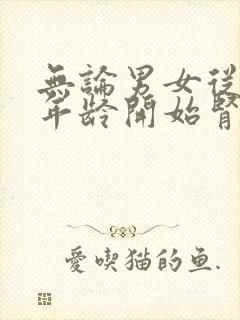 無論男女從
年龄開始腎
愛喫猫的鱼.